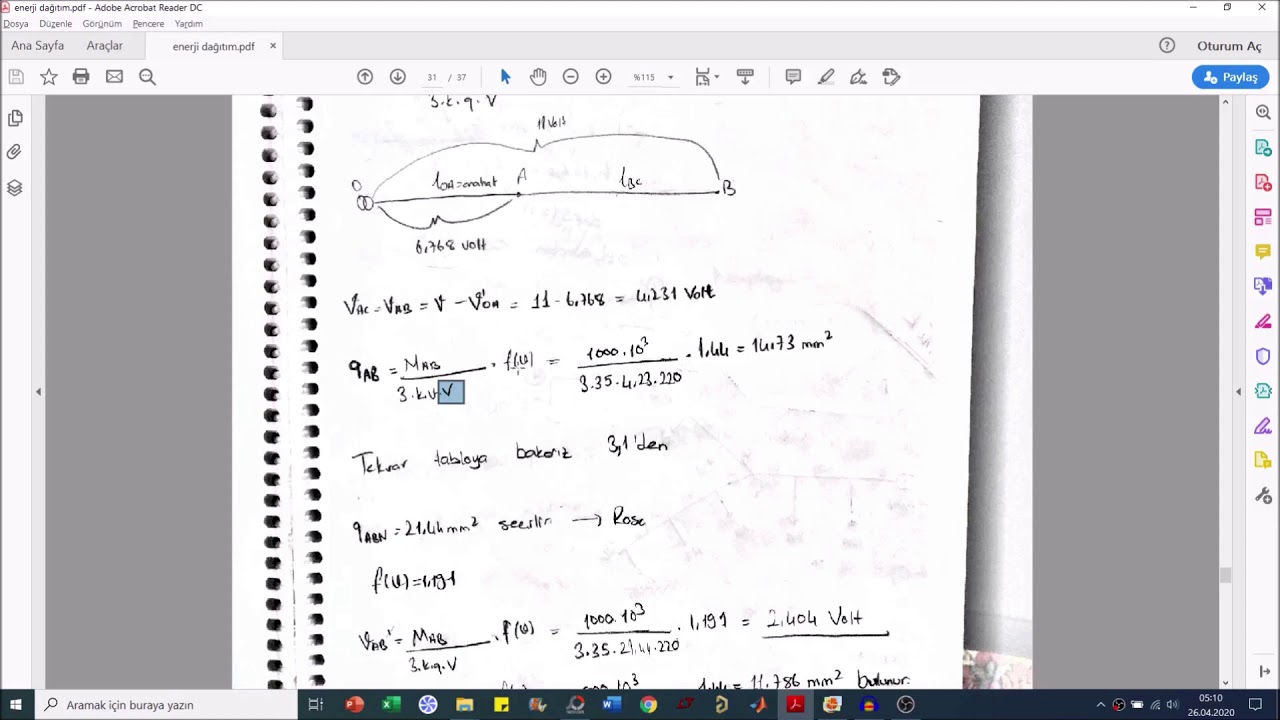 enerji dağıtım.pdf - Adobe Acrobat Reader DC
Dosya Düzenle Görünüm Pencere Yardım
Ana Sayfa Araçlar enerji dağıtım.pdf × Oturum Aç
31 / 37 %115 Paylaş
3.k.q.V
11 Volt
O lOA=anahat A lBC B
6,768 volt
VAC = VAB = V - V'OA = 11 - 6,768 = 4,231 Volt
qAB = MAB / 3.k.v.V . f(υ) = 1000.10³ / 3.35.4,23.220 . 1,44 = 14,73 mm²
Tekrar tabloya bakarız 3,1'den
qABN = 21,44 mm² seçilir → Rose
f(υ) = 1,191
VAB' = MAB / 3.k.q.V . f(υ) = 1000.10³ / 3.35.21,44.220 . 1,191 = 2,404 Volt
1,44 = 11,786 mm² bulunur.
Aramak için buraya yazın
05:10
26.04.2020